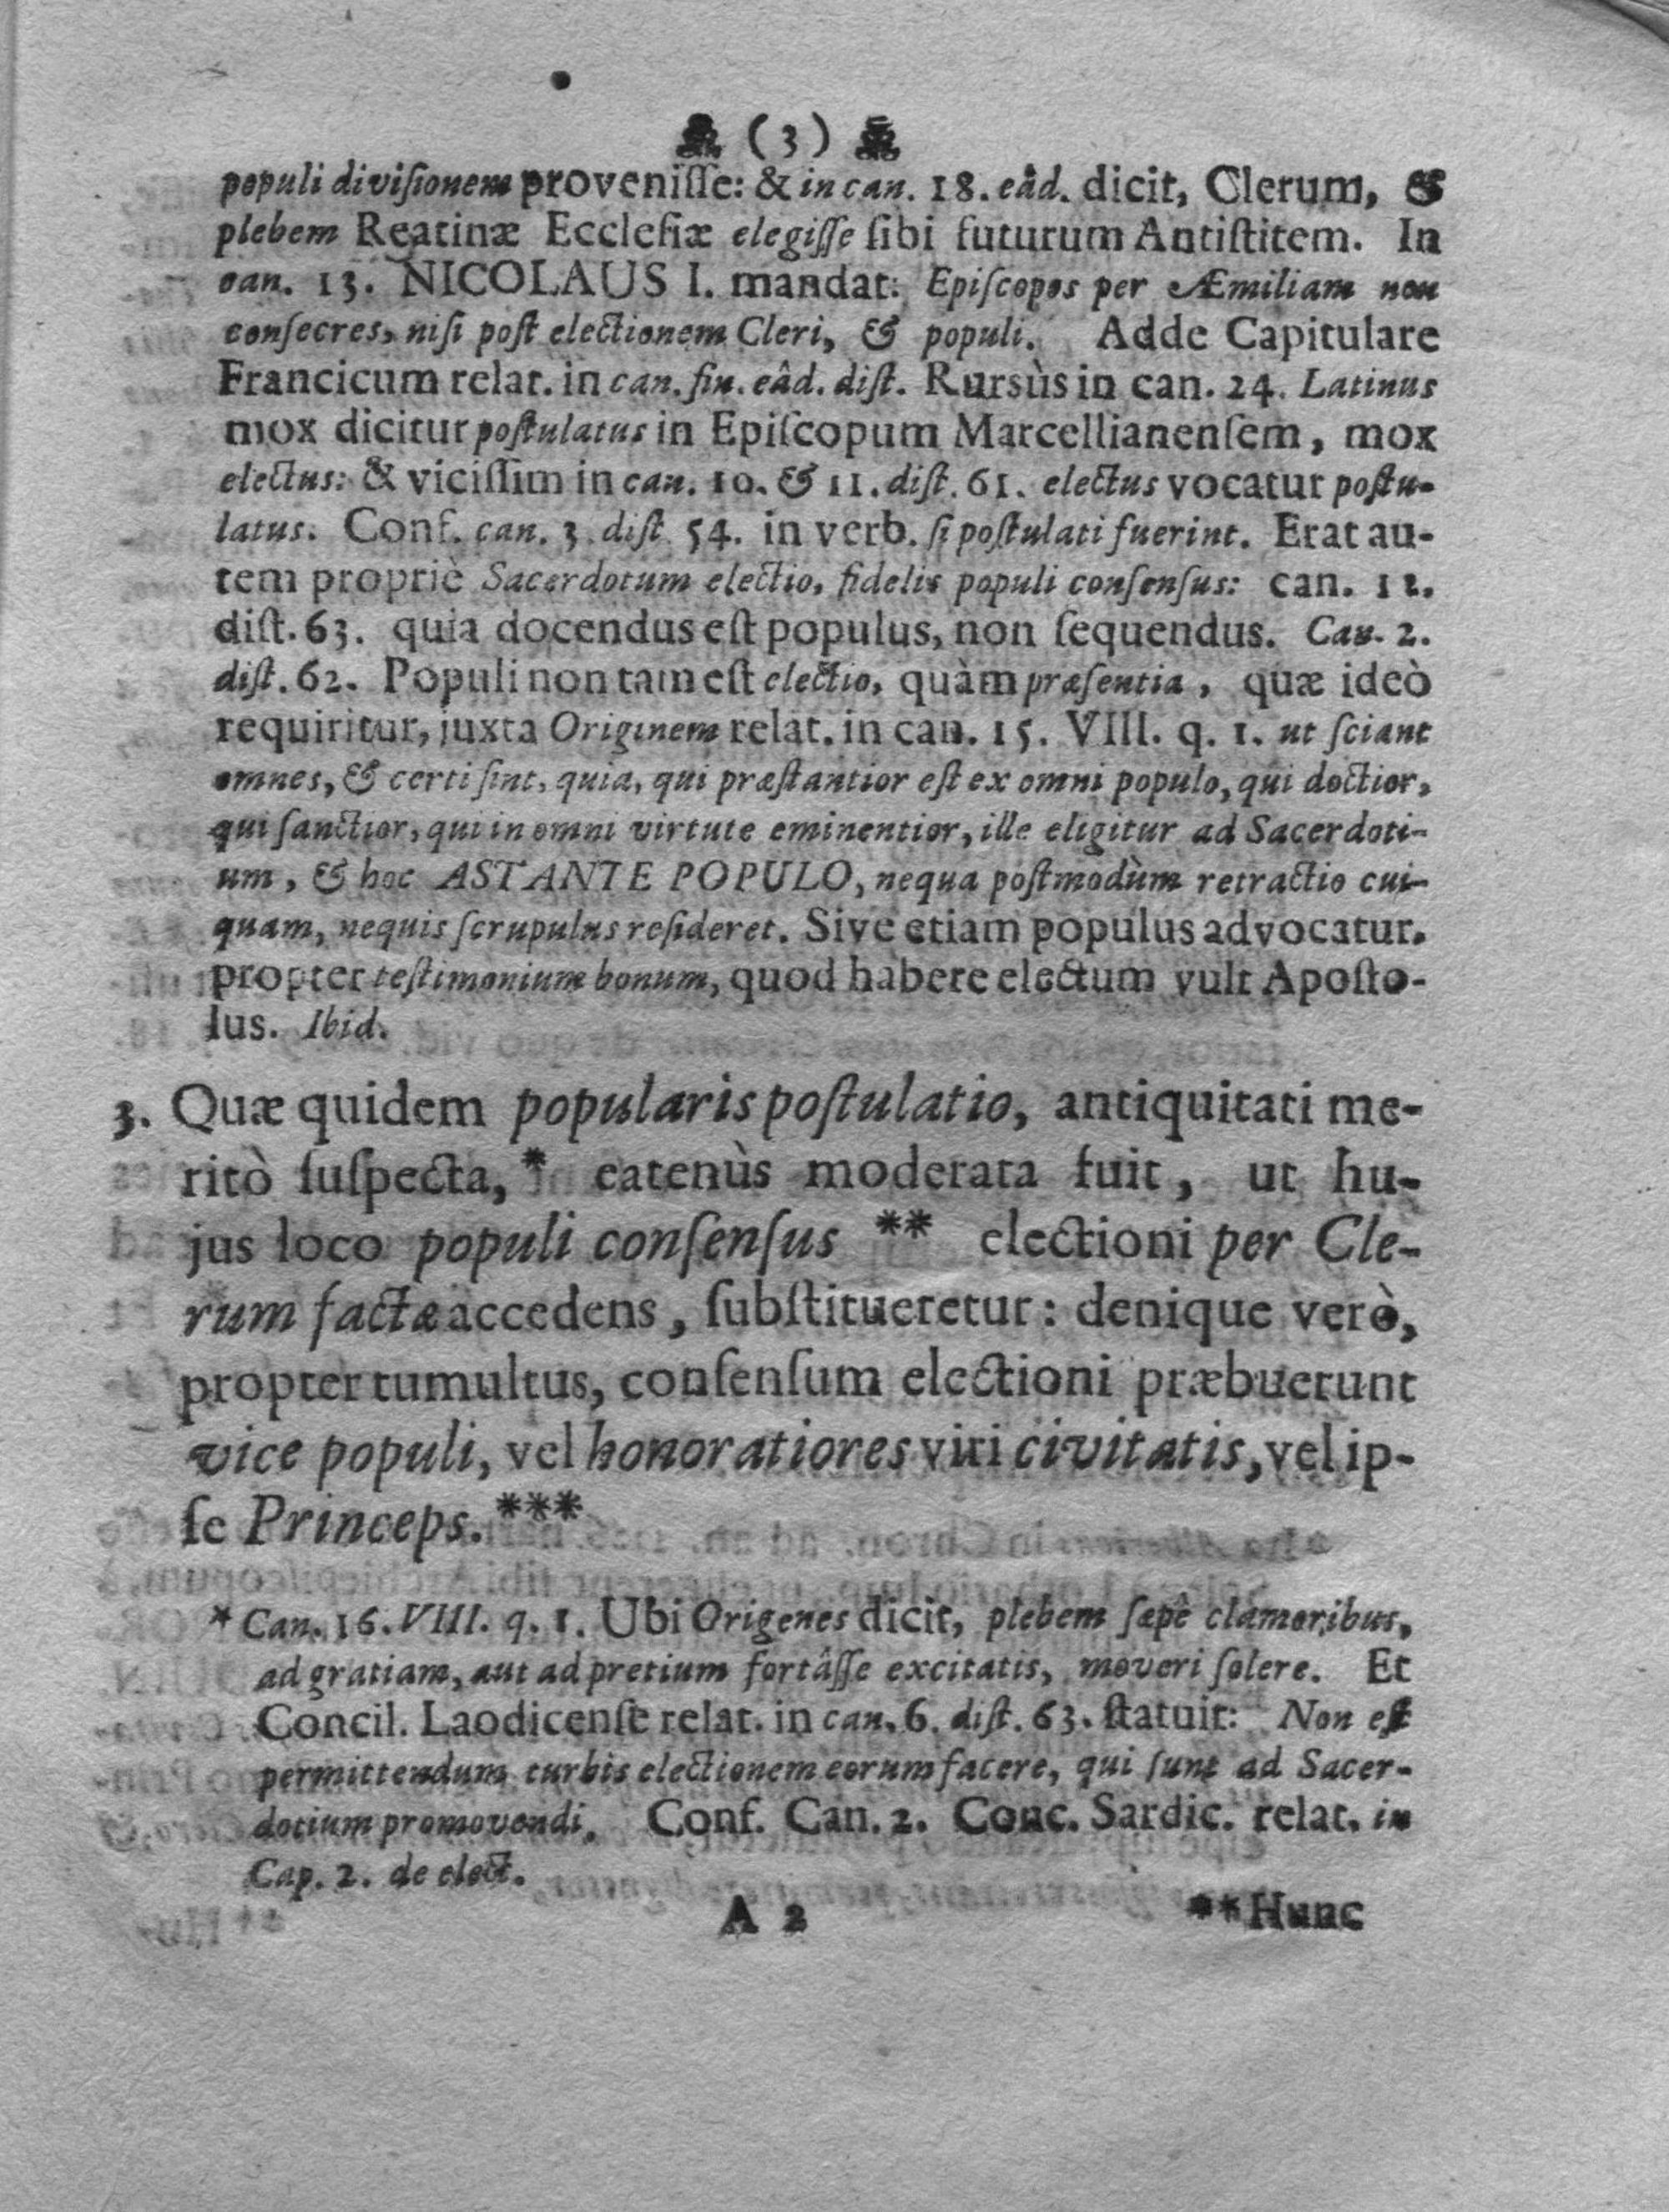 (3)
populi diviſionem proveniſſe: & in can. 18. eâd. dicit, Clerum, &
plebem Reatinæ Eccleſiæ elegiſſe ſibi futurum Antiſtitem. In
can. 13. NICOLAUS I. mandat: Epiſcopos per Æmiliam non
conſecres, niſi poſt electionem Cleri, & populi. Adde Capitulare
Francicum relat. in can. fin. eâd. diſt. Rursùs in can. 24. Latinus
mox dicitur poſtulatus in Epiſcopum Marcellianenſem, mox
electus: & viciſſim in can. 10. & 11. diſt. 61. electus vocatur poſtu-
latus. Conf. can. 3. diſt. 54. in verb. ſi poſtulati fuerint. Erat au-
tem propriè Sacerdotum electio, fidelis populi conſenſus: can. 12.
diſt. 63. quia docendus eſt populus, non ſequendus. Can. 2.
diſt. 62. Populi non tam eſt electio, quàm præſentia, quæ ideò
requiritur, juxta Originem relat. in can. 15. VIII. q. 1. ut ſciant
omnes, & certi ſint, quia, qui præſtantior eſt ex omni populo, qui doctior,
qui ſanctior, qui in omni virtute eminentior, ille eligitur ad Sacerdoti-
um, & hoc ASTANTE POPULO, nequa poſtmodùm retractio cui-
quam, nequis ſcrupulus reſideret. Sive etiam populus advocatur.
propter teſtimonium bonum, quod habere electum vult Apoſto-
lus. Ibid.
3. Quæ quidem popularis poſtulatio, antiquitati me-
ritò ſuſpecta, * eatenùs moderata fuit, ut hu-
jus loco populi conſenſus ** electioni per Cle-
rum factæ accedens, ſubſtitueretur: denique verò,
propter tumultus, conſenſum electioni præbuerunt
vice populi, vel honoratiores viri civitatis, vel ip-
ſe Princeps. ***
* Can. 16. VIII. q. 1. Ubi Origenes dicit, plebem ſæpè clamoribus,
ad gratiam, aut ad pretium fortâſſe excitatis, moveri ſolere. Et
Concil. Laodicenſe relat. in can. 6. diſt. 63. ſtatuit: Non eſt
permittendum turbis electionem eorum facere, qui ſunt ad Sacer-
dotium promovendi. Conf. Can. 2. Conc. Sardic. relat. in
Cap. 2. de elect.
A 2 ** Hunc